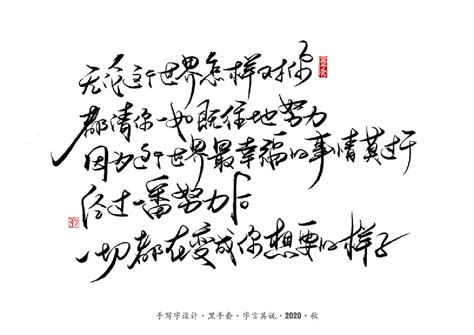 无论这个世界怎样对你
都请你一如既往地努力
因为这个世界最幸福的事情莫过于
经过一番努力后
一切都在变成你想要的样子
手写字设计·黑手套·字言其说·2020·秋